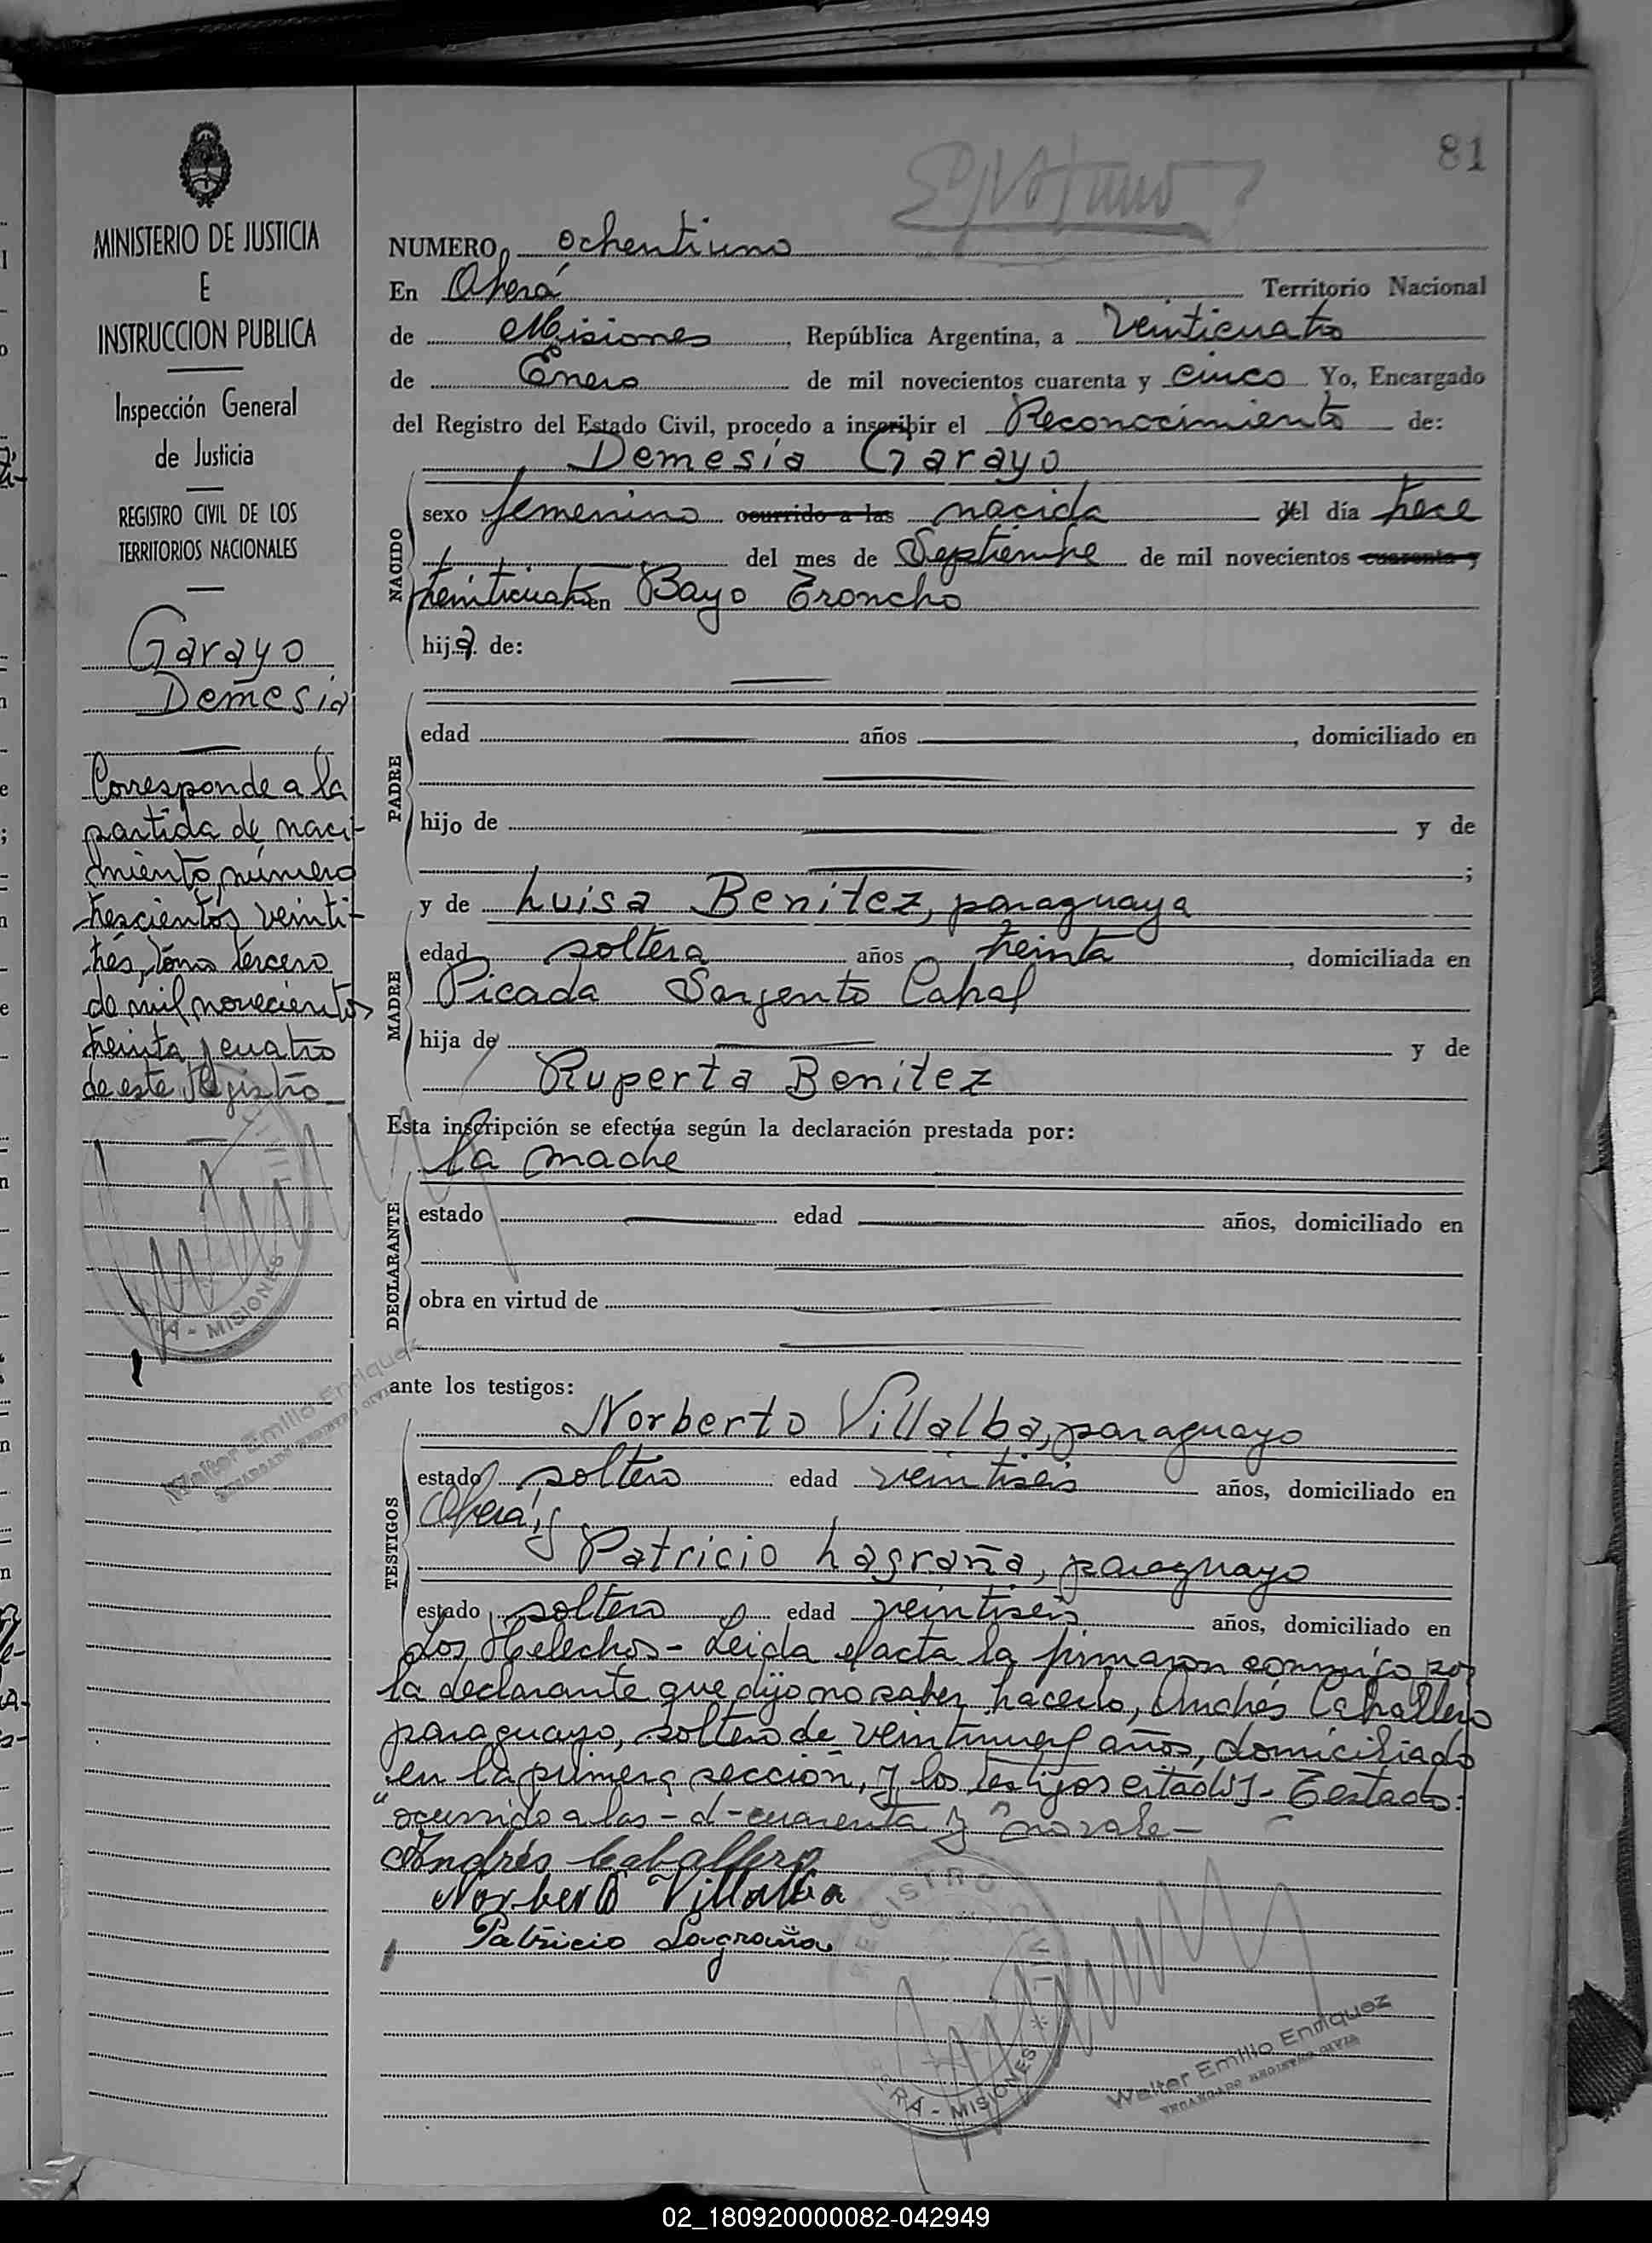 81
MINISTERIO DE JUSTICIA
E
INSTRUCCION PUBLICA
Inspección General
de Justicia
REGISTRO CIVIL DE LOS
TERRITORIOS NACIONALES
Garayo
Demesia
Corresponde a la
partida de naci-
miento, número
trescientos veinti-
trés, tomo tercero
de mil novecientos
treinta y cuatro
de este Registro
MISIONES
Walter Emilio Enriquez
ENCARGADO REGISTRO CIVIL
NUMERO ochentiuno
En Oberá Territorio Nacional
de Misiones, República Argentina, a veinticuatro
de Enero de mil novecientos cuarenta y cinco Yo, Encargado
del Registro del Estado Civil, procedo a inscribir el Reconocimiento de:
Demesia Garayo
NACIDO
sexo femenino ocurrido a las nacida del día trece
del mes de Septiembre de mil novecientos cuarenta y
treinticuatro en Bayo Troncho
hija de:
PADRE
edad años , domiciliado en
hijo de y de
;
MADRE
y de Luisa Benitez, paraguaya
edad soltera años treinta, domiciliada en
Picada Sargento Cabral
hija de y de
Ruperta Benitez
Esta inscripción se efectúa según la declaración prestada por:
la madre
DECLARANTE
estado edad años, domiciliado en
obra en virtud de
ante los testigos:
TESTIGOS
Norberto Villalba, paraguayo
estado soltero edad veintiseis años, domiciliado en
Oberá, y
Patricio Lagraña, paraguayo
estado soltero edad veintiseis años, domiciliado en
Los Helechos - Leida el acta la firmaron conmigo por
la declarante que dijo no saber hacerlo, Andrés Caballero
paraguayo, soltero de veintinueve años, domiciliado
en la primera sección, y los testigos citados - Testado:
"ocurrido a las - d - cuarenta y" no vale -
Andrés Caballero
Norberto Villalba
Patricio Lagraña
REGISTRO CIVIL
MISIONES
Walter Emilio Enriquez
ENCARGADO REGISTRO CIVIL
02_180920000082-042949